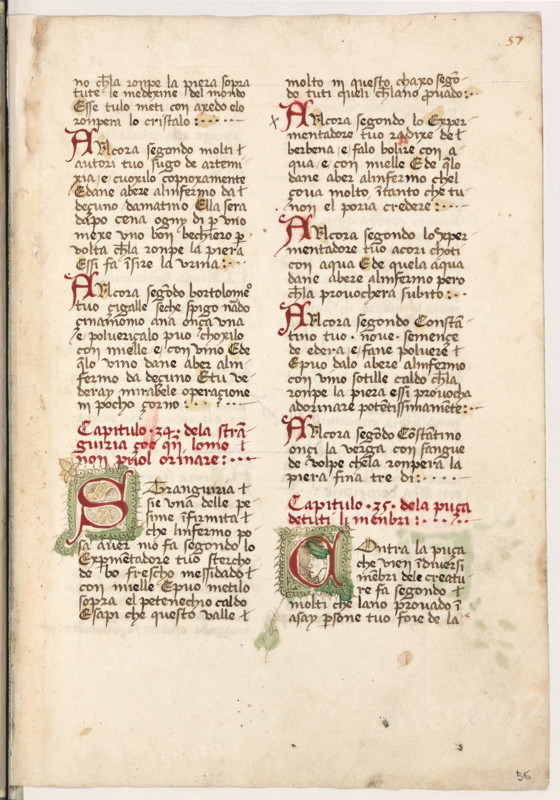 57
no ch̄la ronpe la piera sopra
tute le medexine del mondo
Esse tulo meti con axedo elo
ronpera lo cristalo :· · · ·
ANcora segondo molti ł
autori tuo sugo de artemi
xia e cuoxilo copioxamente
Edane abere alinfermo da ł
deçuno damatino Ella sera
dapo cena ogny di p vno
mexe vno bon bechiero ꝑ
volta ch̄la ronpe la piera
Essi fa īsire la vrina :· · ·
ANcora segōdo bortolomeo
tuo cigalle seche spigo nādo
cinamomo ana onça vna
e polueriçalo puo choxilo
con mielle e con vino Ede
q̄lo vino dane aber alin
fermo da deçuno Etu ve
deray mirabele operacione
in pocho çorno :· · · ·
Capitulo · 34 · dela stran̄
guiria çoe q̄n lomo ł
non pol orinare : · · ·
STranguiria ł
sie vna delle pe
sime īfirmita ł
che linfermo po
sa auer mo fa segondo lo
Expimentadore tuo stercho
de bo frescho messidado ł
con mielle Epuo metilo
sopra el petenechio caldo
Esapi che questo valle ł
molto in questo chaxo segō
do tuti queli ch̄lano prouado :·
ANcora segondo lo Exper
mentadore tuo radixe de ł
berbena e falo bolire con a
qua e con mielle Ede q̄lo
dane aber alinfermo chel
çoua molto ītanto che tu
non el poria credere :· · ·
ANcora segondo loxper
mentadore tuo acori choti
con aqua Ede quela aqua
dane abere alinfermo pero
ch̄la prouochera subito :· · ·
ANcora segondo Constā
tino tuo · noue · semençe
de edera e fane poluere ł
Epuo dalo abere alinfermo
con vino sotille caldo ch̄la
ronpe la piera essi prouocha
adorinare potētissimamēte :·
ANcora segōdo Cōstatino
onçi la verga con sangue
de volpe chela ronpera la
piera fina tre di : · · ·
Capitulo · 35 · dela puça
detuti li menbri : · · · ·
COntra la puça
che vien īdiuersi
mēbri dele creatu
re fa segondo ł
molti che lano prouado ī
asay ꝑsone tuo foie de la
56